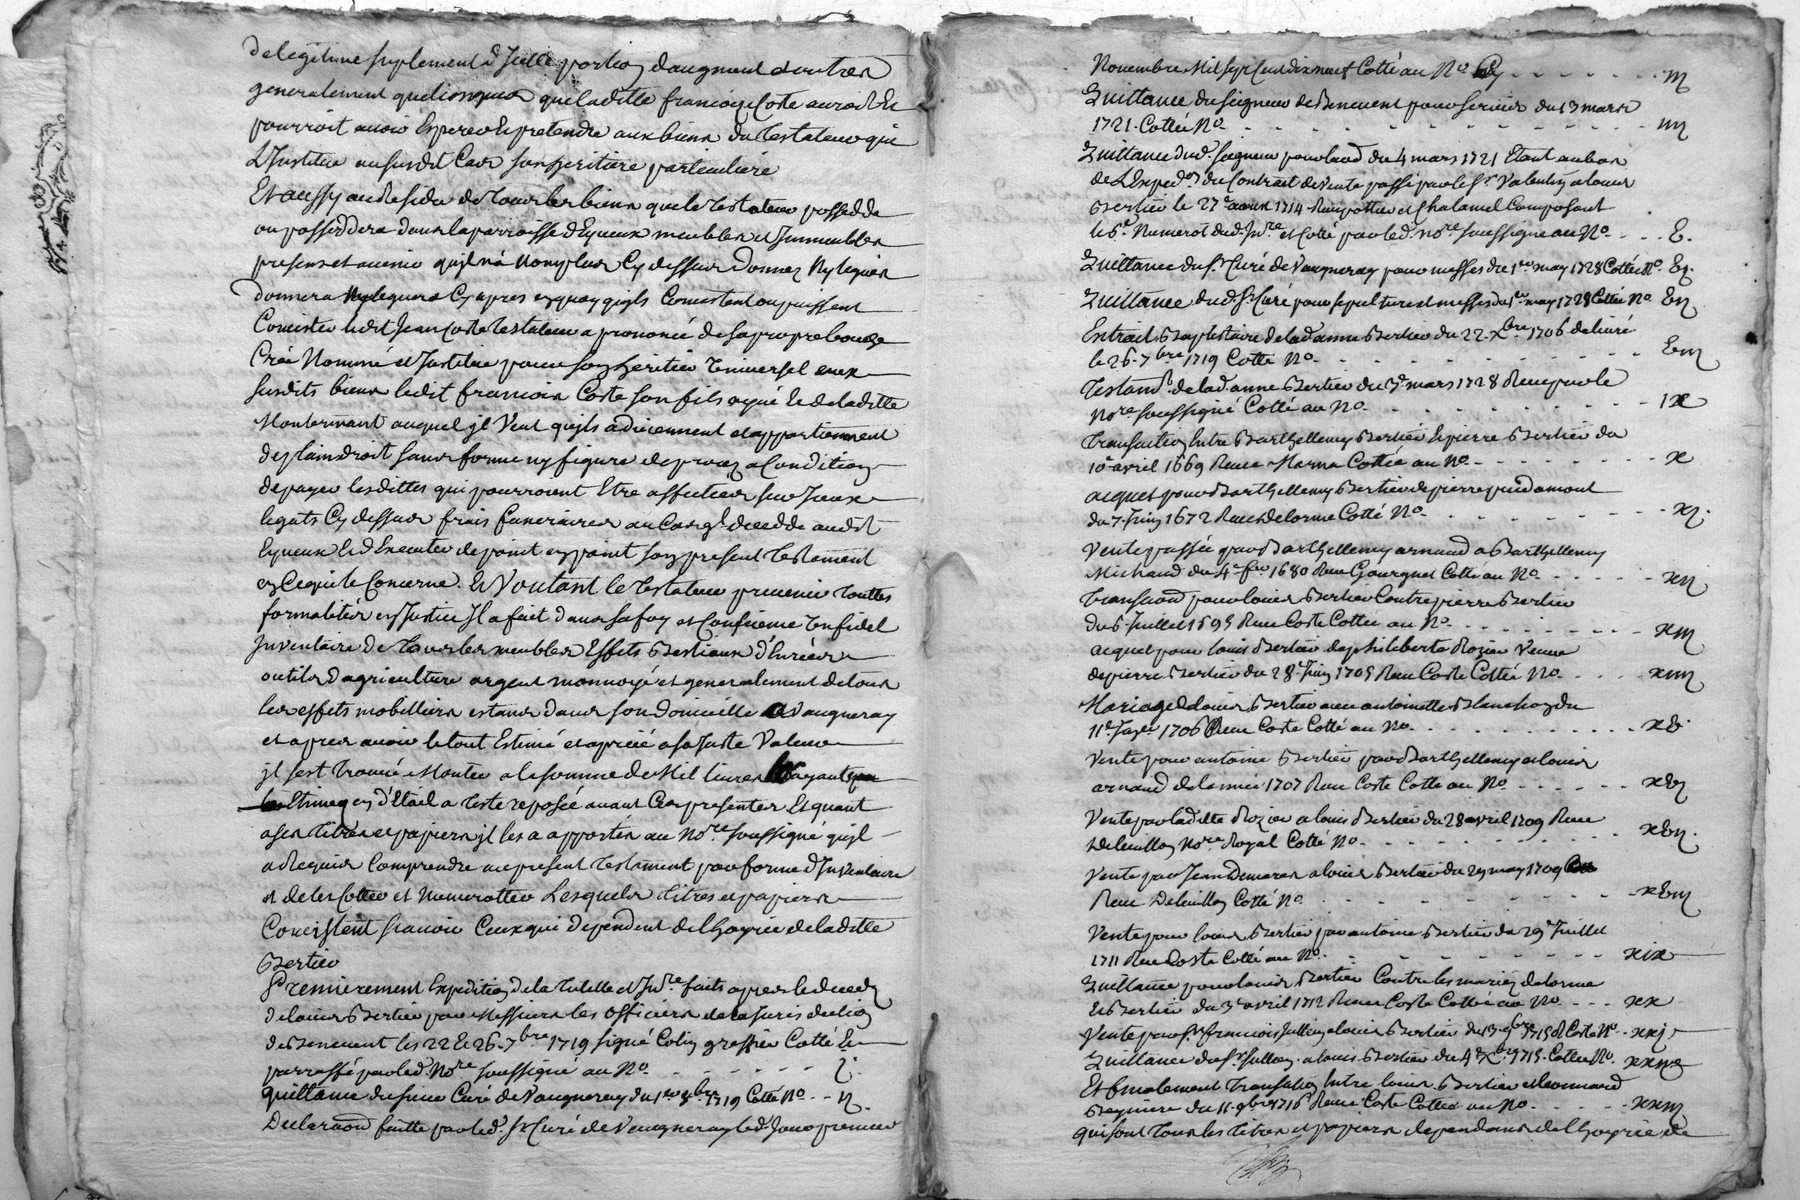 de legitime suplement d'Icelle portion daugment et autres
generalement quelconques que laditte françoize Coste auroit Et
pourroit avoir Esperer Et pretendre aux biens du Testateur qui
L'Institue au susdit Cas son heritiere particuliere
Et aussy au Residu de Tous les biens que le Testateur possedde
ou posseddera dans la parroisse d'Eyueux meubles et Immeubles
presens et avenir qu'jl n'a Nomplus Cy dessus donnez Ny leguéz
donnera Ny leguera Cy apres en quoy qu'jls Consistent ou puissent
Consister ledit Jean Coste Testateur a prononcé de sa propre bouche
Créé Nommé et Institué pour son heritier Universel aux
susdits biens ledit francois Coste son fils et de laditte
Montermant auquel jl Veut qu'jls adviennent et appartiennent
de plain droit sans forme ny figure de procez a Condition
de payer les dittes qui pourroient Etre affectées sur Iceux
legats Cy dessus frais funeraires au Cas qu'jl decedde audit
Eyueux Et d'Executer de point en point son present Testament
en Ce qui le Concerne. Et Voulant le Testateur prevenir Touttes
formalités en Justice Jl a fait dans sa foy et Conscience Un fidel
Inventaire de Tous les meubles Effets Bestiaux d'Enrées
outils d'agriculture argent monnoyé et generalement de tous
les effets mobilliers estans dans son domicille a Vaugneray
et apres avoir le tout Estimé et aprecié a sa Juste Valeur
jl s'est Trouvé Monter a la somme de Mil livres
d'Etail a Teste reposée avant Ces presentes Et quant
a ses titres et papiers jl les a apportés au No.re soussigné qu'jl
a Requis Comprendre au present Testament par forme d'Inventaire
et de les Cotter et Numerotter Lesquels titres et papiers
Consistent scavoir Ceux qui dependent de l'hoyrie de laditte
Bertier
Premierement Expedition de la Tutelle et Jn.re faits apres le decedz
de louis Bertier par Messieurs les officiers de la Jurisdiction
de Benevent les 22 Et 26. 7bre 1719 signé Colin greffier Cotté Et
parraffé par led. No.re soussigné au No. - - - - - - j.
Quittance du sieur Curé de Vaugneray du 1er 1719 Cotté No - - ij.
Declaraõn faitte par led. Sr Curé de Vaugneray led. Jour premier
Novembre Mil Sept Cens dix neuf Cotté au No. - - - - - - iij
Quittance du seigneur de Benevent pour servis du 13 mars
1721. Cottée No. - - - - - - - - - - iiij
Quittance dud. seigneur pour laud du 4 mars 1721 Etant au bas
de L'Exped.on du Contrait de Vente passé par le Sr. Valentin a louis
Bertier le 27e aoust 1714. Reçu pottier et Chalamel Composant
le 6e Numerot dud. Jn.re et Cotté par led. no.re soussigné au No. - - - V.
Quittance du Sr. Curé de Vaugneray pour messes du 1er may 1728 Cottée No. Vj.
Quittance dud. Sr. Curé pour sepulture et messes du 1er may 1728 Cottée No. Vij
Extrait Baptistaire de lad. anne Bertier du 22. Xbre 1706 delivré
le 26. 7bre 1719 Cotté No. - - - - - - - - Viij
Testam.t de lad. anne Bertier du 3e. mars 1728 Reçu par le
No.re soussigné Cotté au No. - - - - - - - - ix
Transaction Entre Barthellemy Bertier Et pierre Bertier du
10e avril 1669 Reçue Morna Cottée au No. - - - - - - x
acquet pour Barthellemy Bertier de pierre puidamont
du 7. Juin 1672 Reçu Delorme Cotté No. - - - - - - xj.
Vente passée par Barthellemy arnaud a Barthellemy
Michaud du 4e fev. 1680 Reçu Gourgnet Cotté au No. - - - - xij
Transaõn pour louis Bertier Contre pierre Bertier
du 6 Juillet 1695 Reçu Coste Cottée au No. - - - - - - xiij
acquet pour louis Bertier de philiberte Rozier Veuve
de pierre Bertier du 28e Juin 1705 Reçu Coste Cotté No. - - - - xiiij
Mariage de louis Bertier avec antoinette Blanchon du
11e Janv. 1706 Reçu Coste Cotté au No. - - - - - - - - xv.
Vente pour antoine Bertier par Barthellemy et louis
arnaud de l'année 1707 Reçu Coste Cotté au No - - - - - - xvj
Vente par laditte Rozier a louis Bertier du 28 avril 1709 Reçu
Deleuillon No.re Royal Cotté No. - - - - - - - - xvij.
Vente par Jean Demares a louis Bertier du 29 may 1709
Reçu Deleuillon Cotté No. - - - - - - - - - xviij
Vente pour louis Bertier par antoine Bertier du 29e Juillet
1711 Reçu Coste Cotté au No. - - - - - - - - xix
Quittance pour louis Bertier Contre les mariez delorme
Et Bertier du 3e avril 1712 Reçue Coste Cottée au No. - - - xx
Vente par Sr. francois Jullien a louis Bertier du 13. 9bre 1715 R Coste No - xxj.
Quittance du Sr. Jullien. a louis Bertier du 4e Xbre 1715. Cottée No. xxij
Et finalement Transaction Entre louis Bertier et leonnard
du 11. 9bre 1716 Reçue Coste Cottée au No. - - - - - xxiij
qui sont Tous les Titres et papiers dependans de l'hoyrie de